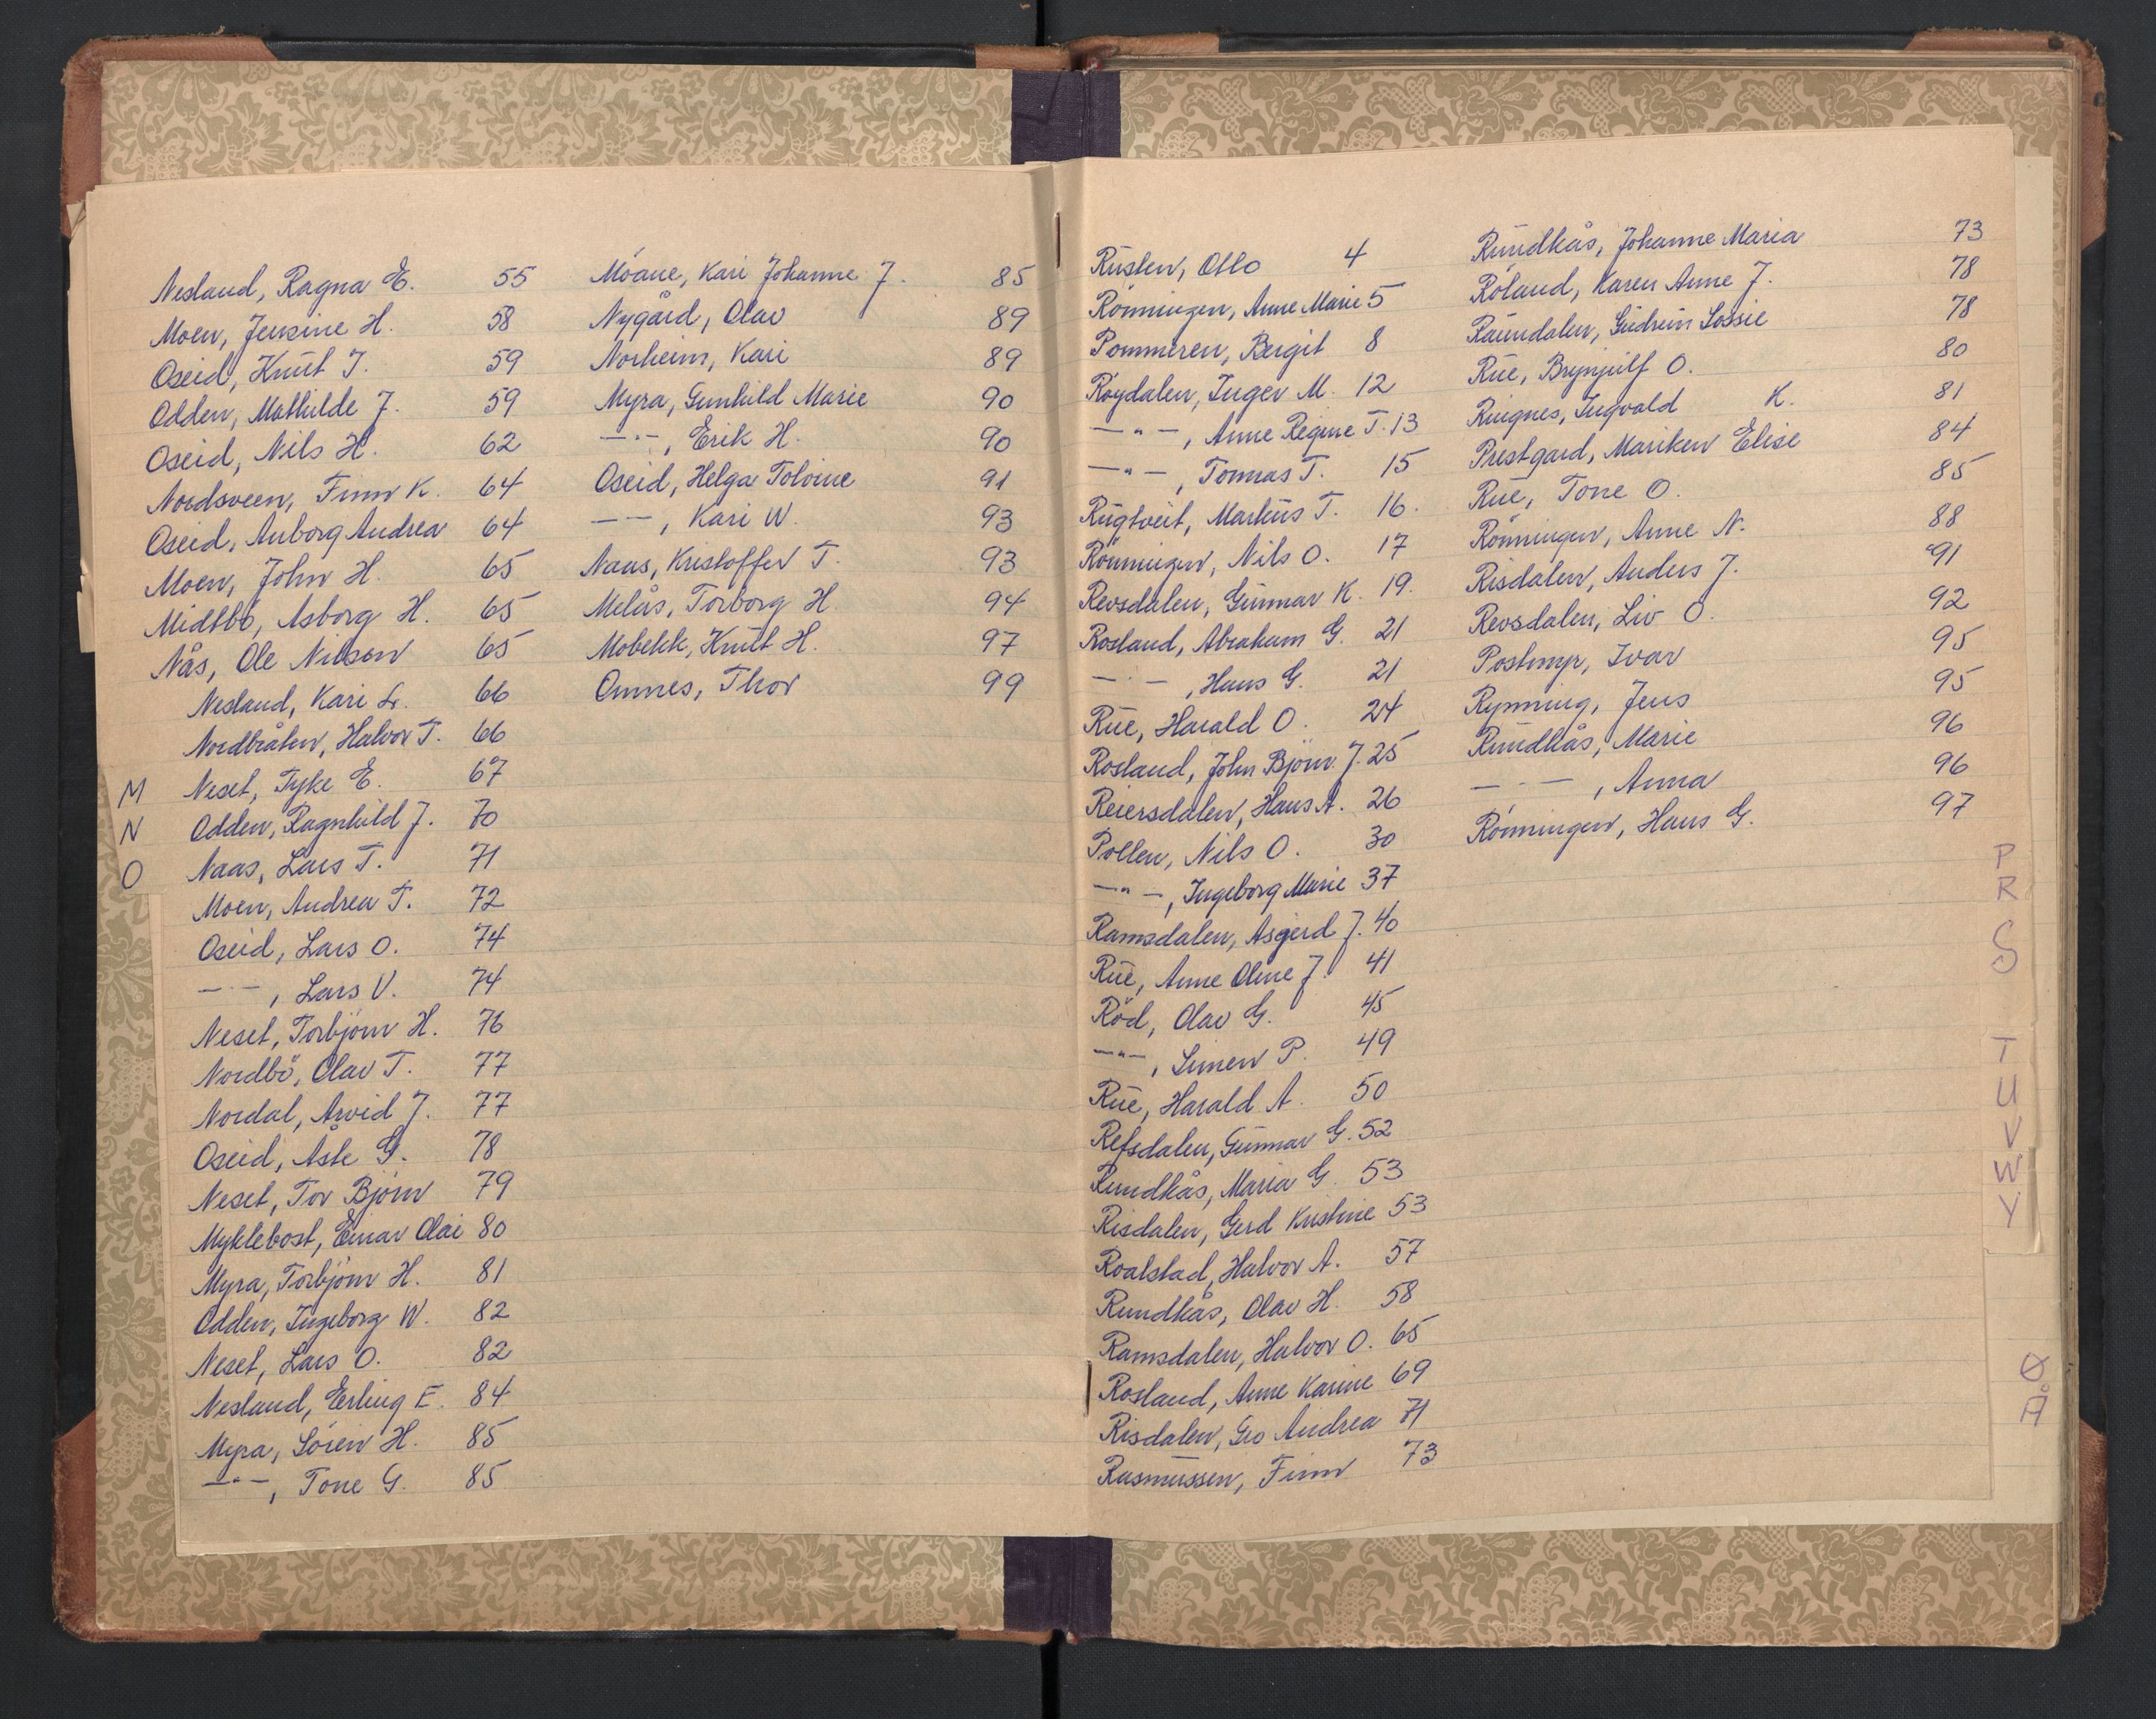 Nesland, Ragna E. 55
Moen, Jensine H. 58
Oseid, Knut T. 59
Odden, Mathilde J. 59
Oseid, Nils H. 62
Nordsveen, Finn K. 64
Oseid, Anborg Andrea 64
Moen, John H. 65
Midtbö, Asborg H. 65
Nås, Ole Nilsen 65
Nesland, Kari L. 66
Nordbråten, Halvor T. 66
M
Neset, Tyke E. 67
N
Odden, Ragnhild J. 70
O
Naas, Lars T. 71
Moen, Andrea T. 72
Oseid, Lars O. 74
—"—, Lars V. 74
Neset, Torbjörn H. 76
Nordbö, Olav T. 77
Nordal, Arvid J. 77
Oseid, Aste G. 78
Neset, Tor Björn 79
Myklebost, Einar Olai 80
Myra, Torbjörn H. 81
Odden, Ingeborg W. 82
Neset, Lars O. 82
Nesland, Erling E. 84
Myra, Sören H. 85
—"—, Tone G. 85
Möane, Kari Johanne J. 85
Nygård, Olav 89
Norheim, Kari 89
Myra, Gunhild Marie 90
—"—, Erik H. 90
Oseid, Helga Tolvine 91
—"—, Kari W. 93
Naas, Kristoffer T. 93
Melås, Torborg H. 94
Mobekk, Knut H. 97
Omnes, Thor 99
Rusten, Otto 4
Rönningen, Anne Marie 5
Pommeren, Bergit 8
Röydalen, Inger M. 12
—"—, Anne Regine T. 13
—"—, Tomas T. 15
Rugtveit, Markus T. 16.
Rönningen, Nils O. 17
Revsdalen, Gunnar K. 19.
Rosland, Abraham G. 21
—"—, Hans G. 21
Rue, Harald O. 24
Rosland, John Björn J. 25
Reiersdalen, Hans A. 26
Pollen, Nils O. 30
—"—, Ingeborg Marie 37
Ramsdalen, Asgerd J. 40
Rue, Anne Oline J. 41
Röd, Olav G. 45
—"—, Simen P. 49
Rue, Harald A. 50
Refsdalen, Gunnar G. 52
Rundkås, Maria G. 53
Risdalen, Gerd Kristine 53
Roalstad, Halvor A. 57
Rundkås, Olav H. 58
Ramsdalen, Halvor O. 65
Rosland, Anne Karine 69
Risdalen, Gro Andrea 71
Rasmussen, Finn 73
Rundkås, Johanne Maria 73
Röland, Karen Anne J. 78
Raundalen, Gudrun Lossie 78
Rue, Brynjulf O. 80
Ringnes, Ingvald K. 81
Prestgard, Mariken Elise 84
Rue, Tone O. 85
Rönningen, Anne N. 88
Risdalen, Anders J. 91
Revsdalen, Liv O. 92
Postmyr, Ivar 95
Rynning, Jens 95
Rundkås, Marie 96
—"—, Anna 96
Rönningen, Hans G. 97
P
R
S
T
U
V
W
Y
Ø
Å